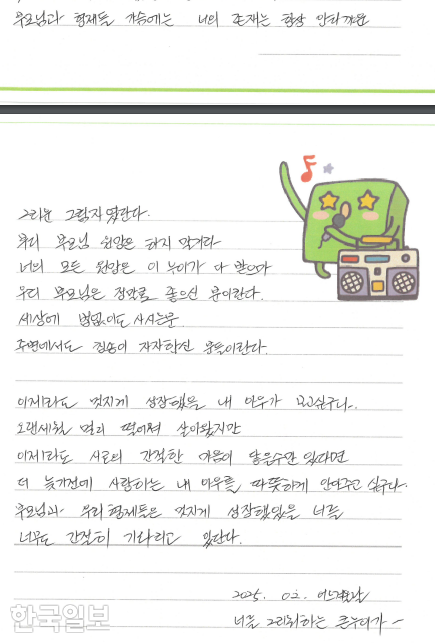 부모님과 형제들 가슴에는 너의 존재는 항상 안타까운
그리운 그림자 였단다.
부디 부모님 원망은 하지 말거라
너의 모든 원망은 이 누이가 다 받으마
우리 부모님은 정말로 좋으신 분이란다.
세상에 법없이도 사시는분
주변에서도 칭송이 자자하신 분들이란다.
이제라도 멋지게 성장했을 내 아우가 보고싶구나.
오랜세월 멀리 떨어져 살아왔지만
이제라도 서로의 간절한 마음이 닿을수만 있다면
더 늦기전에 사랑하는 내 아우를 따뜻하게 안아주고 싶구나.
부모님과 우리형제들은 멋지게 성장했있을 너를
너무도 간절히 기다리고 있단다.
2025. 02. 어느겨울날
너를 그리워하는 큰누이가 -
한국일보